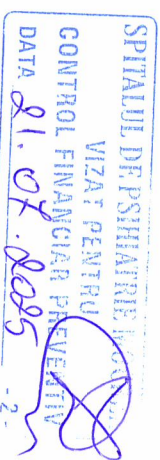 SPITALUL DE PSIHIATRIE
VIZAT PENTRU
CONTROL FINANCIAR PREVENTIV
DATA 21.07.2025
- 2 -